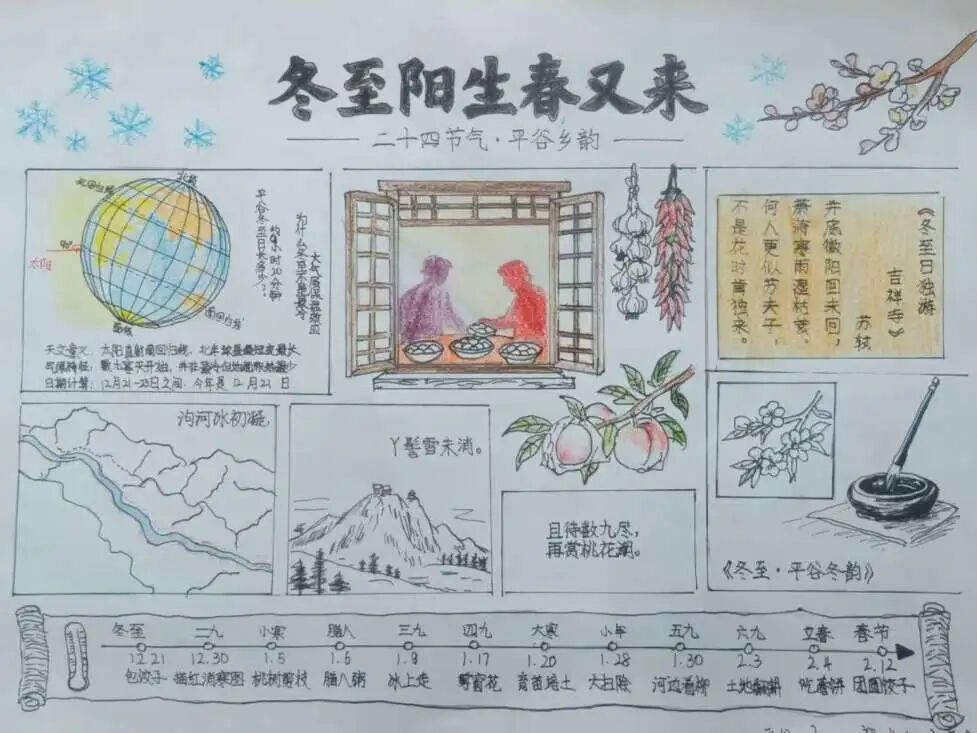 冬至阳生春又来
二十四节气·平谷乡韵
北极
北回归线
90°
太阳
南回归线
南极
平谷冬至日长多少?
约9小时20分钟
为什么冬至不是最冷
大气层保温效应
天文意义:太阳直射南回归线,北半球昼最短夜最长
气候特征:数九寒天开始,并非最冷但地面积热最少
日期计算:12月21-23日之间,今年是12月21日
《冬至日独游
吉祥寺》
苏轼
井底微阳回未回,
萧萧寒雨湿枯荄。
何人更似苏夫子,
不是花时肯独来。
泃河冰初凝
丫髻雪未消。
且待数九尽,
再赏桃花潮。
《冬至·平谷冬韵》
冬至 二九 小寒 腊八 三九 四九 大寒 小年 五九 六九 立春 春节
12.21 12.30 1.5 1.6 1.8 1.17 1.20 1.28 1.30 2.3 2.4 2.12
包饺子 描红消寒图 桃树剪枝 腊八粥 冰上走 剪窗花 育苗培土 大扫除 河边看柳 土地翻耕 吃春饼 团圆饺子